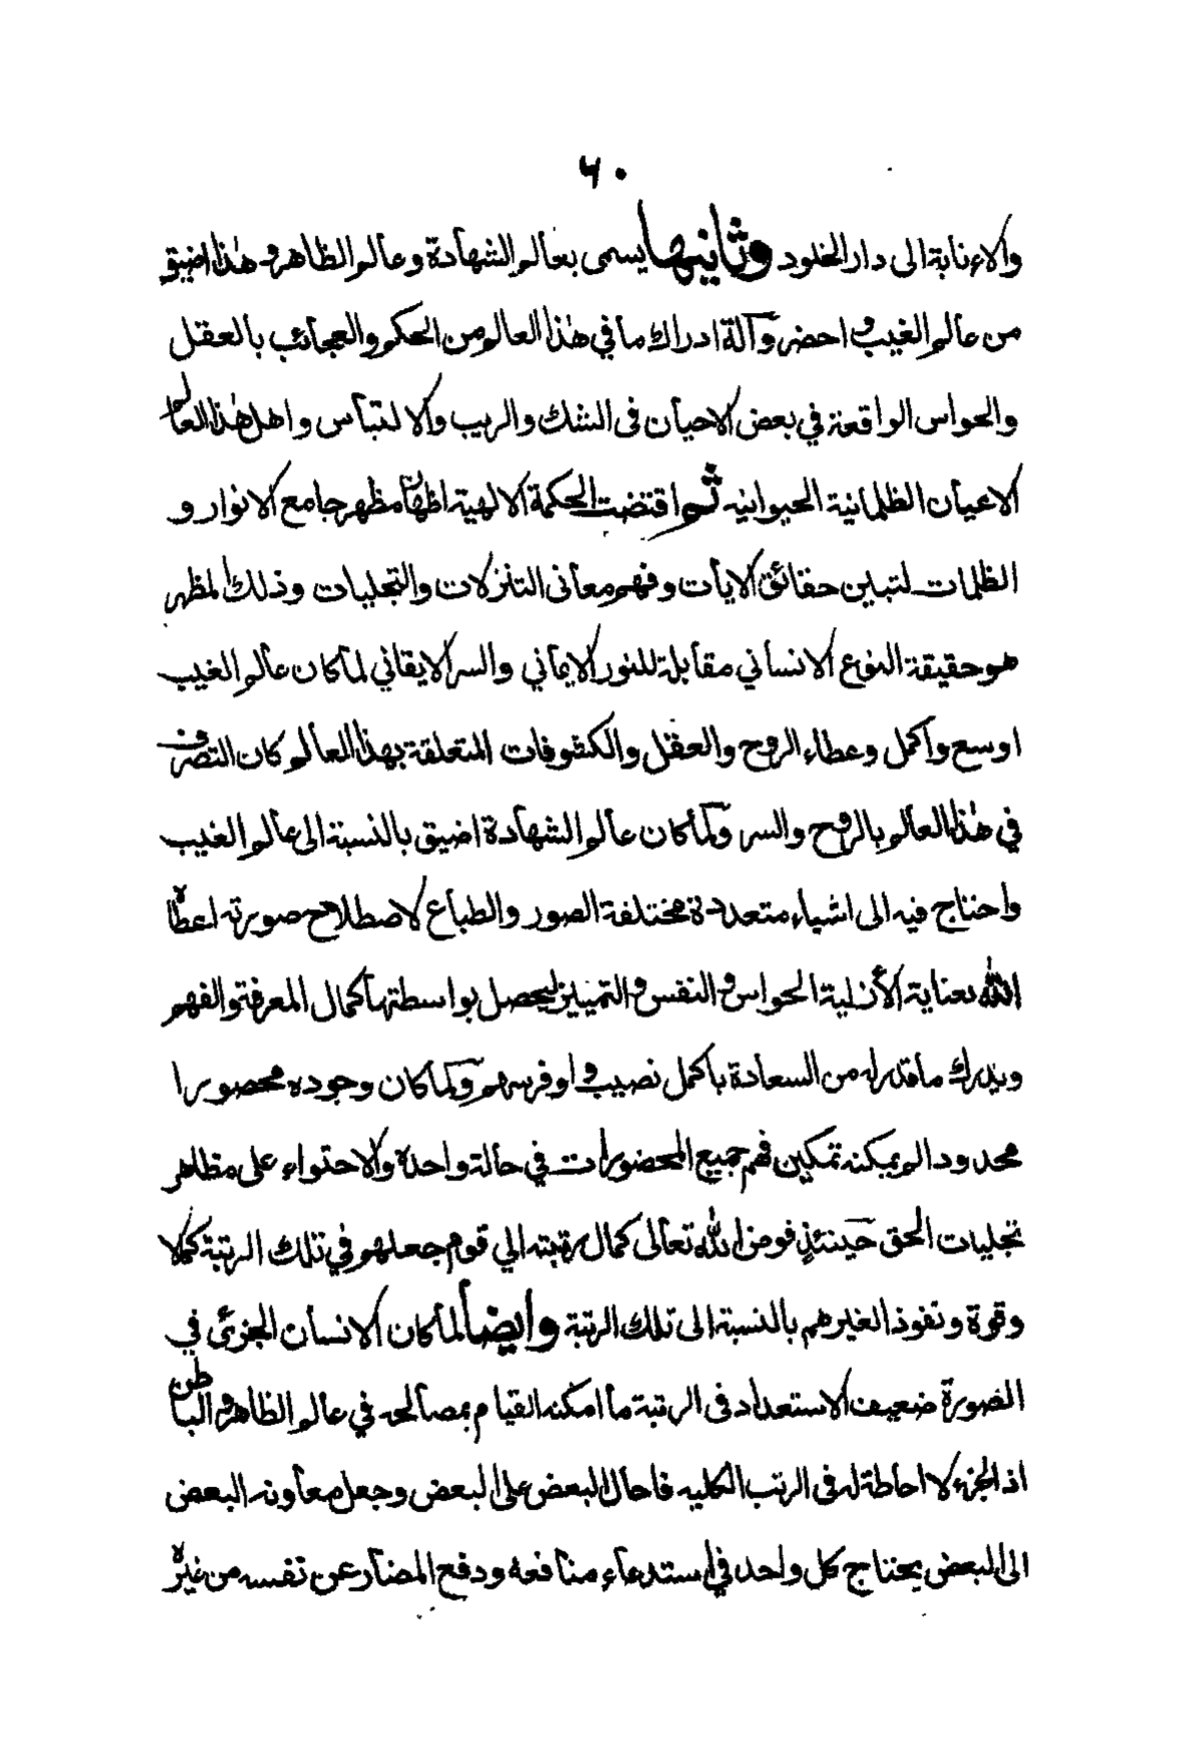 ٦٠
والانابة الى دار الخلود وثانيها يسمى بعالم الشهادة وعالم الظاهر وهذا اضيق
من عالم الغيب واحضر وآلة ادراك ما في هذا العالم من الحكم والعجائب بالعقل
والحواس الواقعة في بعض الاحيان فى الشك والريب والالتباس واهل هذا العالم
الاعيان الظلمانية الحيوانيه ثم اقتضت الحكمة الالهية اظهار مظهر جامع الانوار و
الظلمات لتبين حقائق الايات وفهم معانى التنزلات والتجليات وذلك المظهر
هو حقيقة النوع الانساني مقابلة للنور الايماني والسر الايقاني لما كان عالم الغيب
اوسع واكمل وعطاء الروح والعقل والكشوفات المتعلقة بهذا العالم كان التصرف
في هذا العالم بالروح والسر ولما كان عالم الشهادة اضيق بالنسبة الى عالم الغيب
واحتاج فيه الى اشياء متعددة مختلفة الصور والطباع لاصطلاح صورته اعطاه
الله بعناية الأزلية الحواس والنفس والتمييز ليحصل بواسطتها كمال المعرفة والفهم
ويدرك ما قدر له من السعادة باكمل نصيب واوفر سهم ولما كان وجوده محصورا
محدودا لم يمكنه تمكين فهم جميع المحضورات في حالة واحدة والاحتواء على مظاهر
تجليات الحق حينئذ فوض الله تعالى كمال مرتبته الي قوم جعلهم في تلك الرتبة كملا
وقوة ونفوذا لغيرهم بالنسبة الى تلك الرتبة وايضا لما كان الانسان الجزئي في
الصورة ضعيف الاستعداد فى الرتبة ما امكنه القيام بمصالحه في عالم الظاهر والباطن
اذ الجزء لا احاطة له فى الرتب الكليه فاحال البعض على البعض وجعل معاونه البعض
الى البعض يحتاج كل واحد في استدعاء منافعه ودفع المضار عن نفسه من غيره